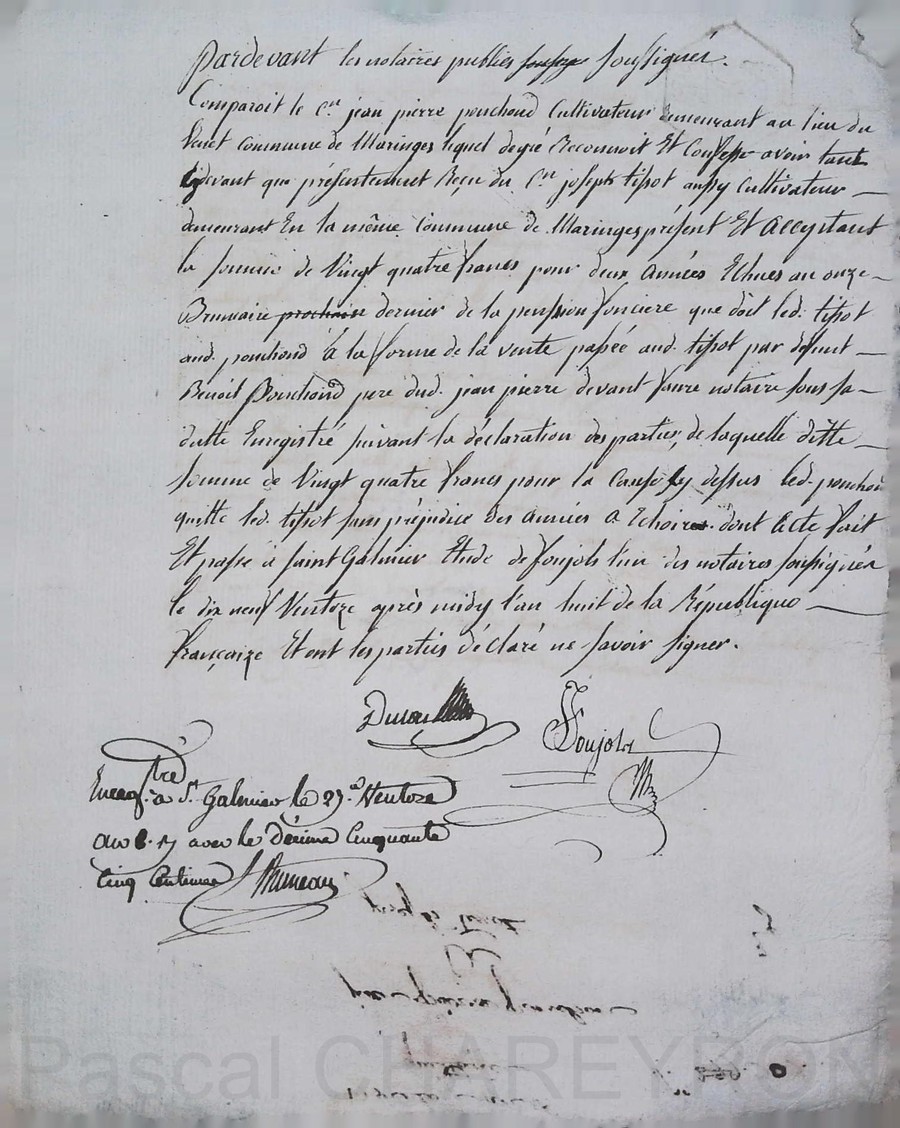 Pardevant les notaires publics soussignés.
Comparoit le Cen jean pierre ponchond Cultivateur demeurant au lieu du
Venet commune de Maringes lequel degré Reconnoit Et Confesse avoir tant
cydevant que présentement Reçu du Cen joseph tissot aussy Cultivateur
demeurant En la même Commune de Maringes présent Et acceptant
la somme de Vingt quatre francs pour deux années Echues au onze
Brumaire prochain dernier de la pension fonciere que doit led. tissot
aud. ponchond à la forme de la vente passée aud. tissot par défunt
Benoit Ponchond pere dud. jean pierre devant faure notaire sous sa
datte Enregistré suivant la déclaration des parties, de laquelle ditte
somme de Vingt quatre francs pour la Cause sy dessus led. ponchon
quitte led. tissot sans préjudice des années a Echoir. dont Acte fait
Et passé à saint Galmier Etude de foujols l'un des notaires soussignés
le dix neuf Ventoze après midy l'an huit de la République
françaize Et ont les parties déclaré ne savoir signer.
Foujols
Enregtré à St. Galmier le 27. Ventoze
an 8. avec le Décime Cinquante
Cinq Centimes
Pascal CHAREYRON